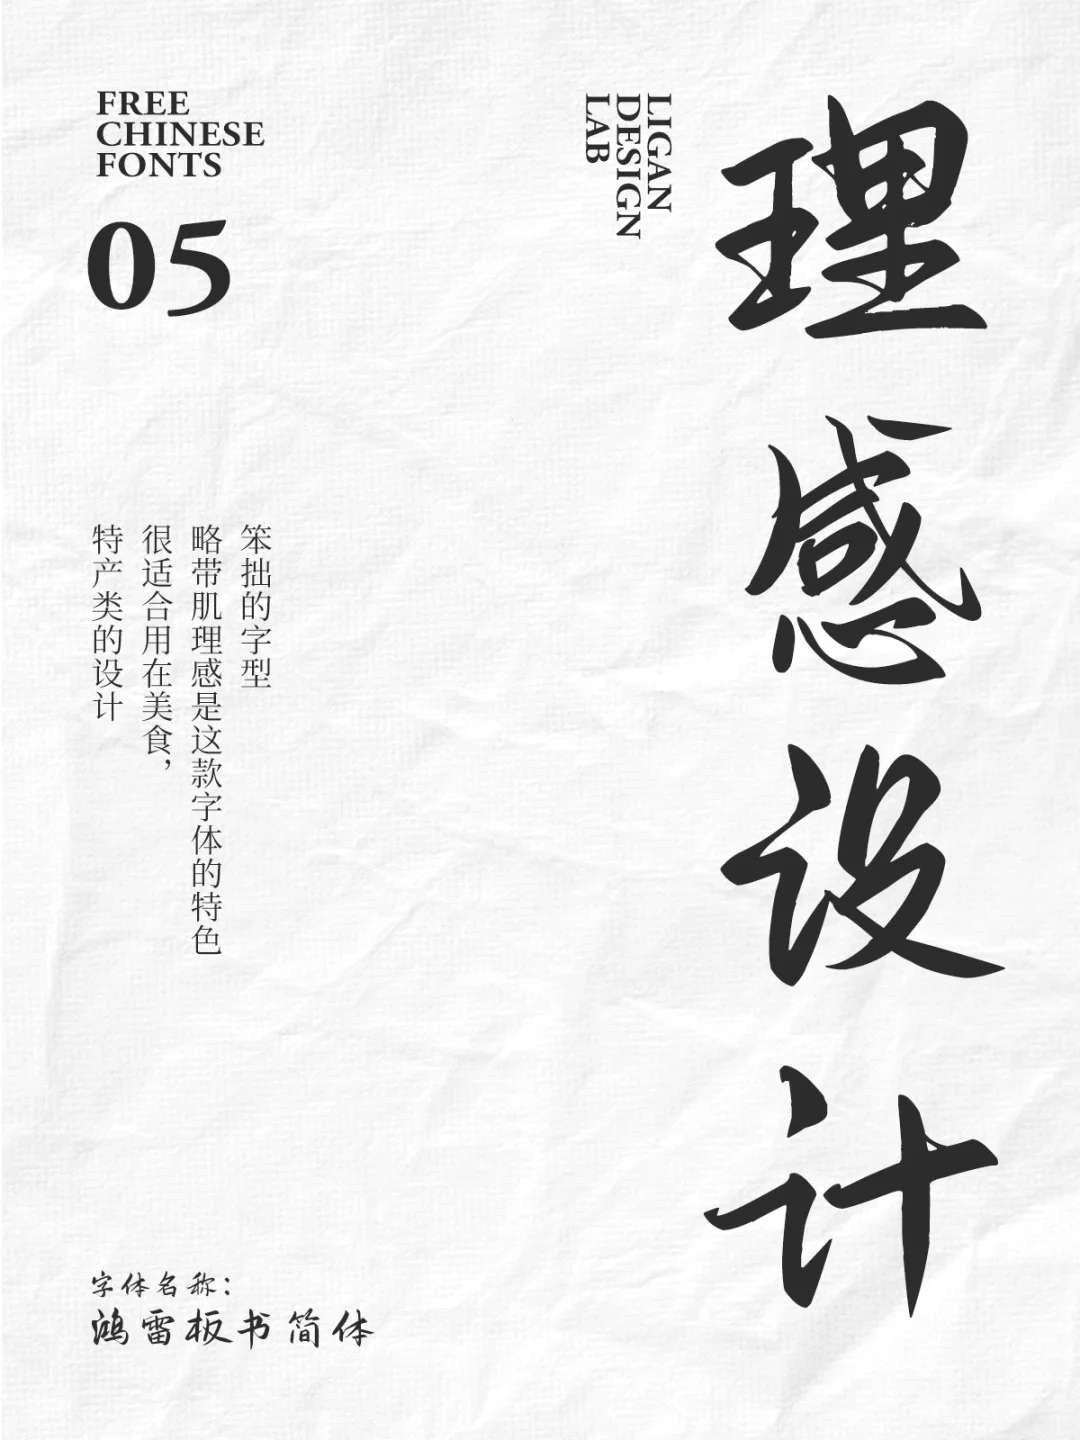 FREE
CHINESE
FONTS
05
LIGAN
DESIGN
LAB
理感设计
笨拙的字型
略带肌理感是这款字体的特色
很适合用在美食，
特产类的设计
字体名称：
鸿雷板书简体